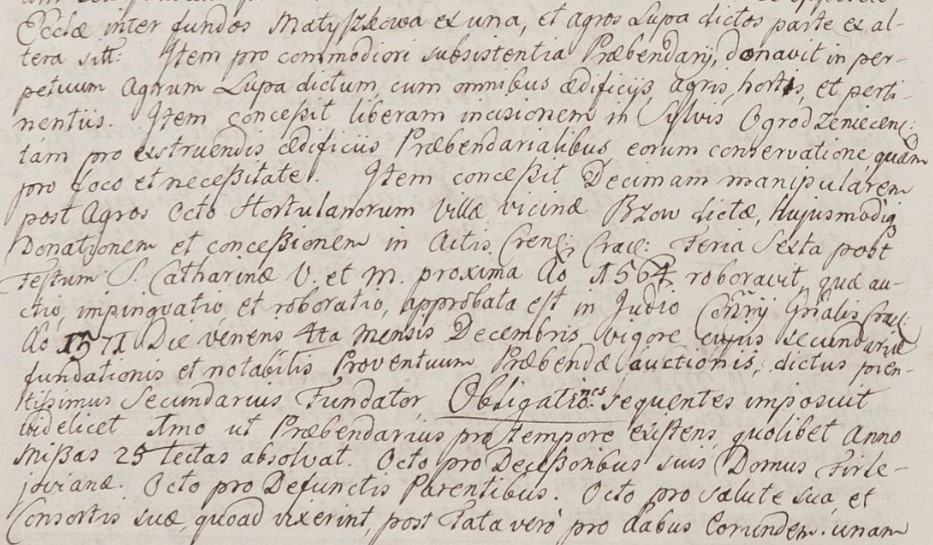 Ecclæ inter fundos Matyszkowa ex una, et agros Lupa dictos parte ex al-
tera sitt: Item pro commodiori subsistentia Præbendarij, donavit in per-
petuum Agrum Lupa dictum, cum omnibus ædificijs, agris, hortis, et perti-
nentiis. Item conceßit liberam incisionem in Sylvis Ogrodzeniecen:
tam pro exstruendis ædificiis Præbendarialibus eorum conservatione, quam
pro foco et neceßitate. Item conceßit Decimam manipularem
post Agros Octo Hortulanorum Villæ vicinæ Bzow dictæ, hujusmodiq
Donationem et conceßionem in Actis Cren: Crac: Feria Sexta post
Festum S. Catharinæ V. et M. proxima Ao 1564 roboravit, quæ au-
ctio, impinguatio, et roboratio, approbata est in Judio Conrij Gnalis Crac:
Ao 1571 Die veneris 4ta mensis Decembris, vigore cujus secundariæ
fundationis et notabilis Proventuum Præbendæ auctionis, dictus pien-
tißimus Secundarius Fundator, Obligatio.nes sequentes imposuit
videlicet 1mo ut Præbendarius pro tempore existens, quolibet Anno
Mißas 25 lectas absolvat. Octo pro Deceßoribus suis Domus Firle-
jovianæ. Octo pro Defunctis Parentibus. Octo pro salute sua, et
Consortis suæ, quoad vixerint, post Fata verò pro Aabus Eorundem. unam